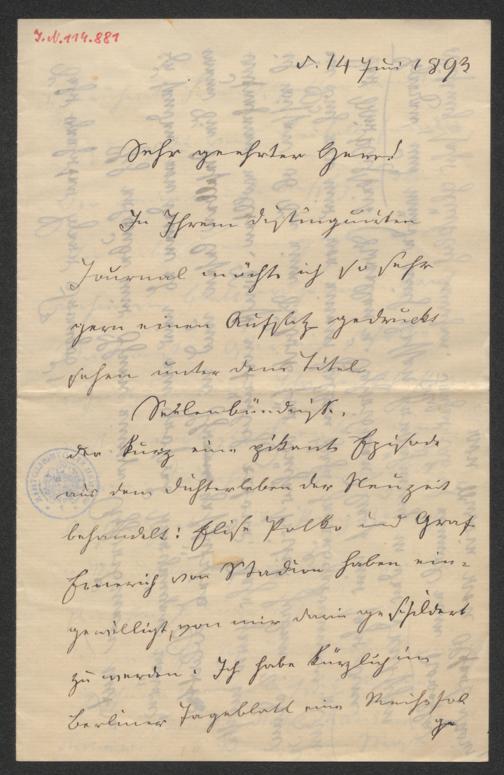 J.N. 114.881
d. 14 Juni 1893
Sehr geehrter Herr!
In Ihrem distinguirten
Journal möchte ich so sehr
gern einen Aufsatz gedruckt
sehen unter dem Titel
Seelenbündnisse,
der kurz eine pikante Episode
aus dem Dichterleben der Neuzeit
behandelt: Elise Polko und Graf
Emerich von Stadion haben ein=
gewilligt, von mir darin geschildert
zu werden. Ich habe kürzlich im
Berliner Tageblatt eine